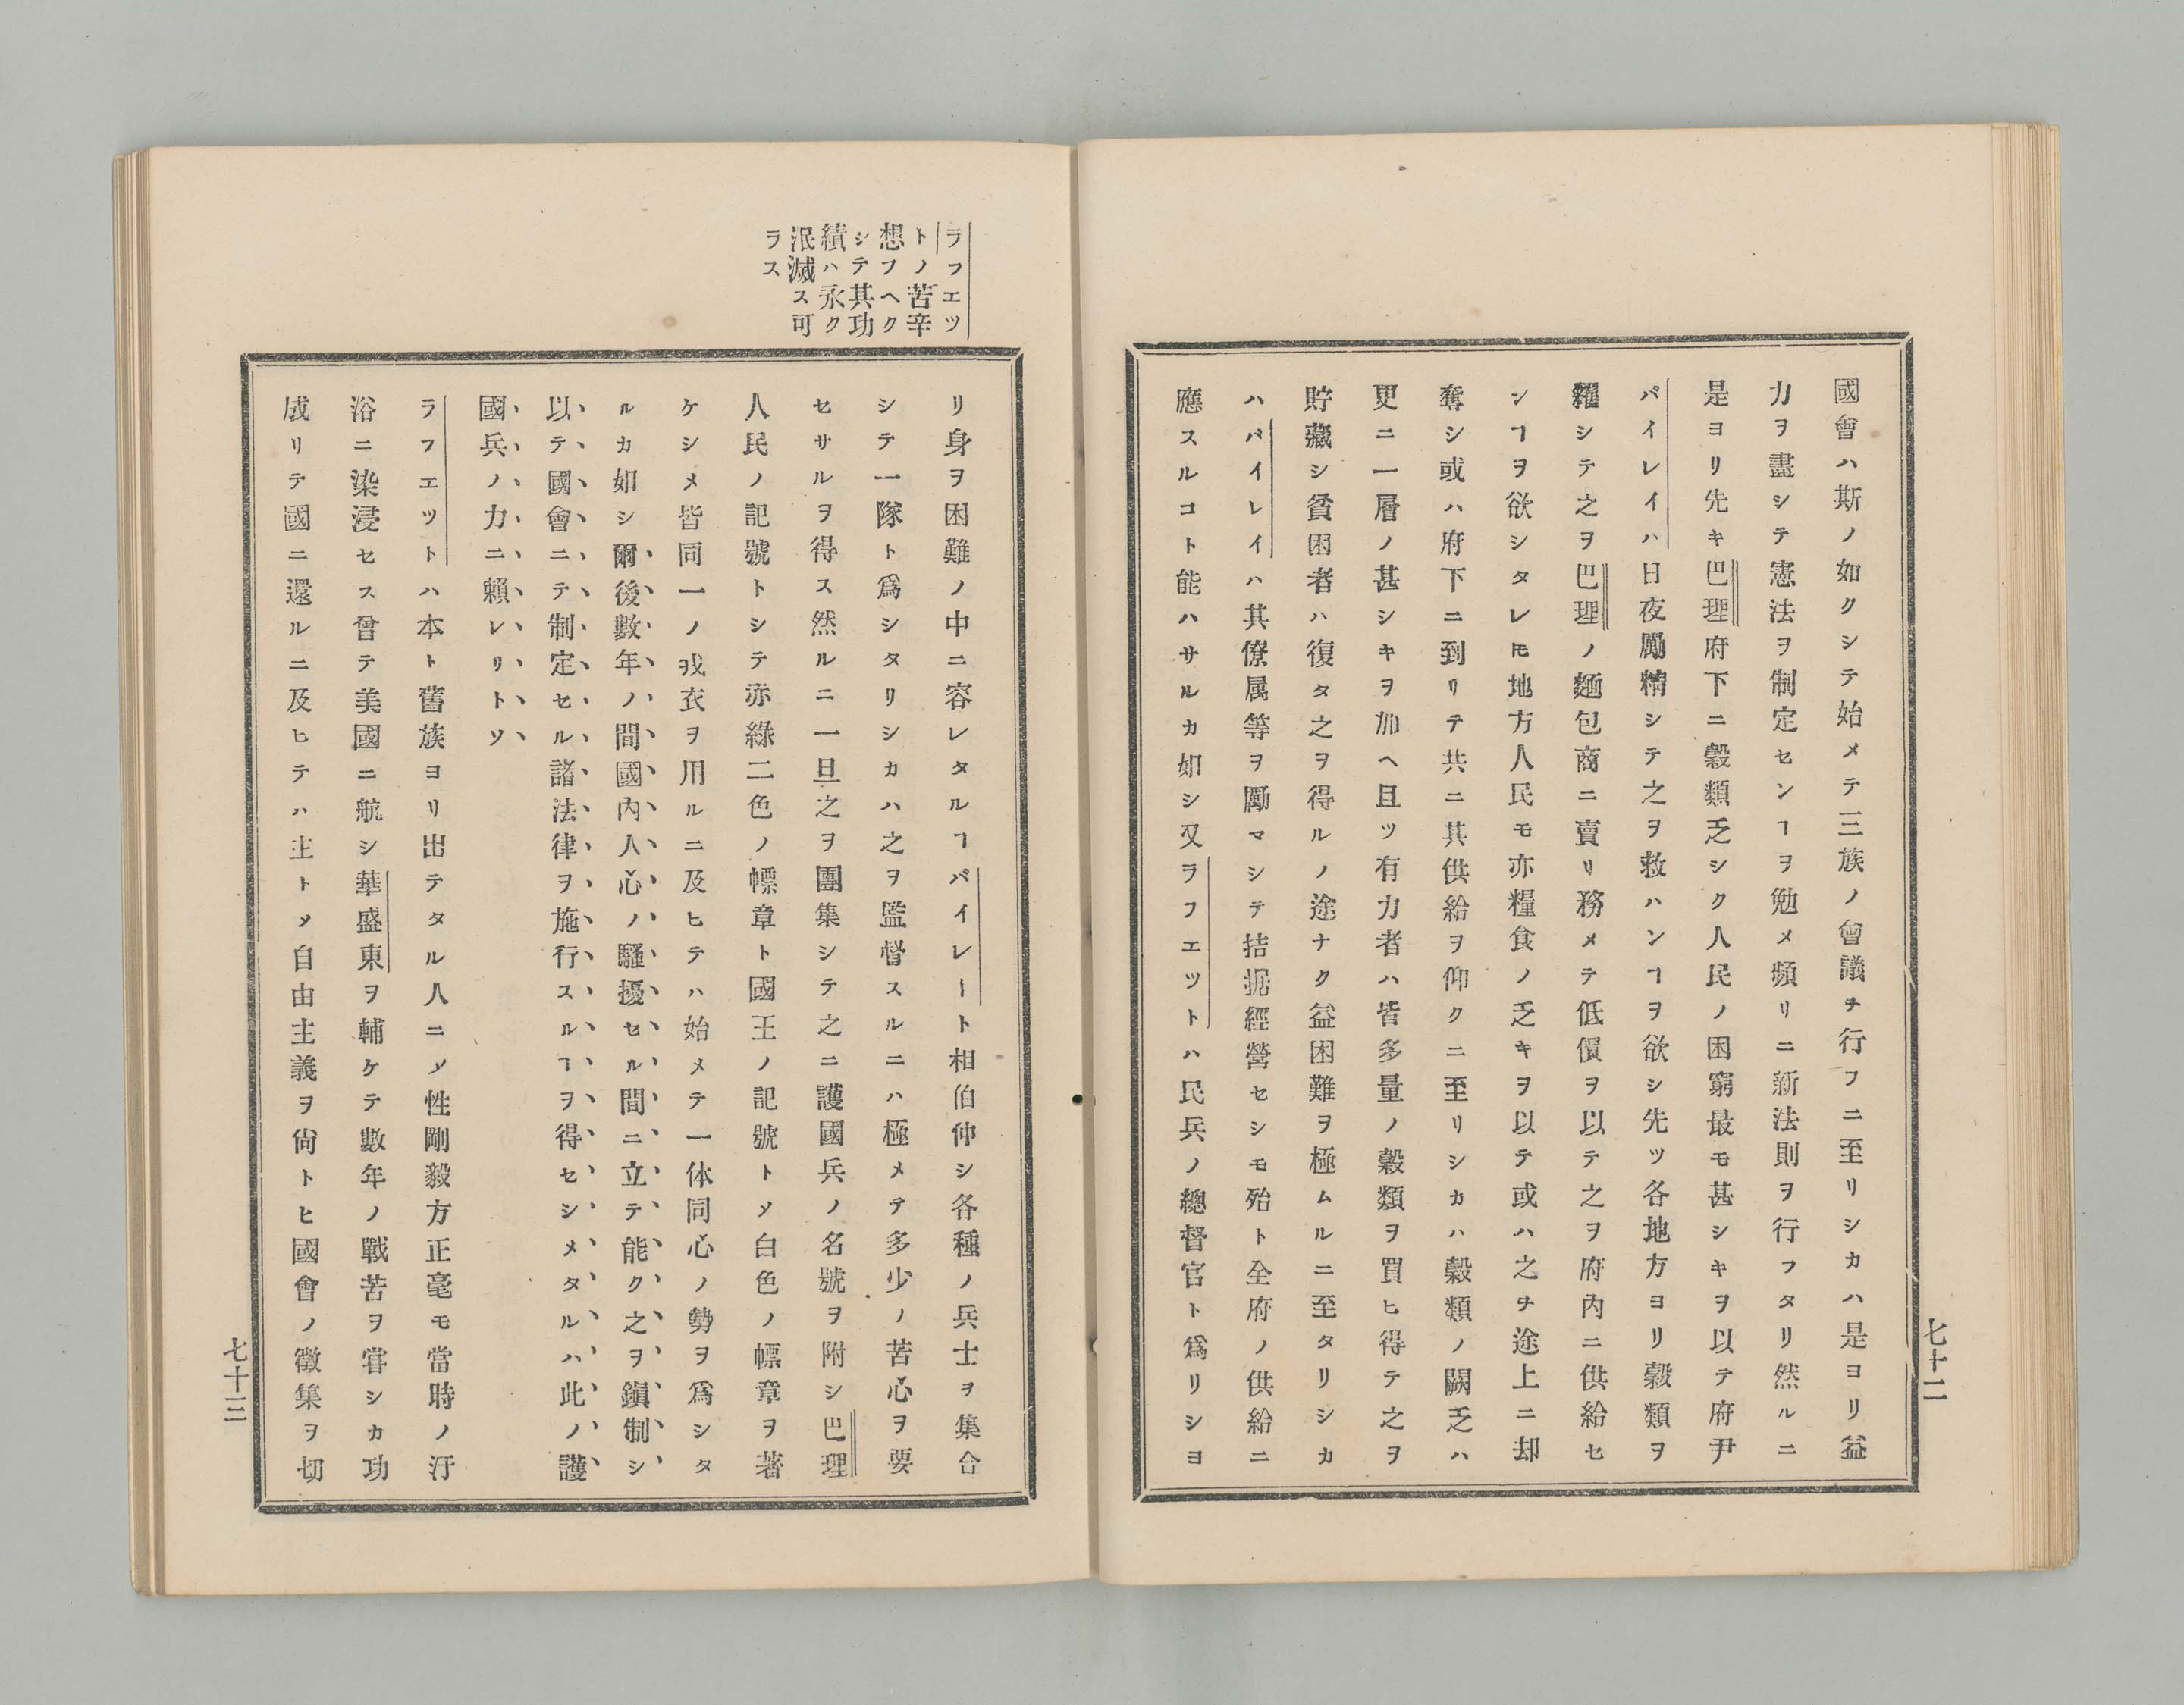 國會ハ斯ノ如クシテ始メテ三族ノ會議ヲ行フニ至リシカハ是ヨリ益
力ヲ盡シテ憲法ヲ制定センヿヲ勉メ頻リニ新法則ヲ行フタリ然ルニ
是ヨリ先キ巴理府下ニ穀類乏シク人民ノ困窮最モ甚シキヲ以テ府尹
バイレイハ日夜勵精シテ之ヲ救ハンヿヲ欲シ先ツ各地方ヨリ穀類ヲ
糴シテ之ヲ巴理ノ麵包商ニ賣リ務メテ低價ヲ以テ之ヲ府內ニ供給セ
シヿヲ欲シタレ𪜈地方人民モ亦糧食ノ乏キヲ以テ或ハ之ヲ途上ニ却
奪シ或ハ府下ニ到リテ共ニ其供給ヲ仰クニ至リシカハ穀類ノ闕乏ハ
更ニ一層ノ甚シキヲ加ヘ且ツ有力者ハ皆多量ノ穀類ヲ買ヒ得テ之ヲ
貯藏シ貧困者ハ復タ之ヲ得ルノ途ナク益困難ヲ極ムルニ至タリシカ
ハバイレイハ其僚属等ヲ勵マシテ拮据經營セシモ殆ト全府ノ供給ニ
應スルコト能ハサルカ如シ又ラフエットハ民兵ノ總督官ト爲リシヨ
七十二
ラフエツ
トノ苦辛
想フヘク
シテ其功
績ハ永ク
泯滅ス可
ラス
リ身ヲ困難ノ中ニ容レタルヿバイレート相伯仲シ各種ノ兵士ヲ集合
シテ一隊ト爲シタリシカハ之ヲ監督スルニハ極メテ多少ノ苦心ヲ要
セサルヲ得ス然ルニ一旦之ヲ團集シテ之ニ護國兵ノ名號ヲ附シ巴理
人民ノ記號トシテ亦綠二色ノ幖章ト國王ノ記號トメ白色ノ幖章ヲ著
ケシメ皆同一ノ戎衣ヲ用ルニ及ヒテハ始メテ一体同心ノ勢ヲ爲シタ
ルカ如シ爾後數年ノ間國內人心ノ騷擾セル間ニ立テ能ク之ヲ鎭制シ
以テ國會ニテ制定セル諸法律ヲ施行スルヿヲ得セシメタルハ此ノ護
國兵ノ力ニ賴レリトソ
ラフエットハ本ト舊族ヨリ出テタル人ニメ性剛毅方正毫モ當時ノ汙
浴ニ染浸セス曾テ美國ニ航シ華盛東ヲ輔ケテ數年ノ戰苦ヲ甞シカ功
成リテ國ニ還ルニ及ヒテハ主トメ自由主義ヲ尙トヒ國會ノ徵集ヲ切
七十三